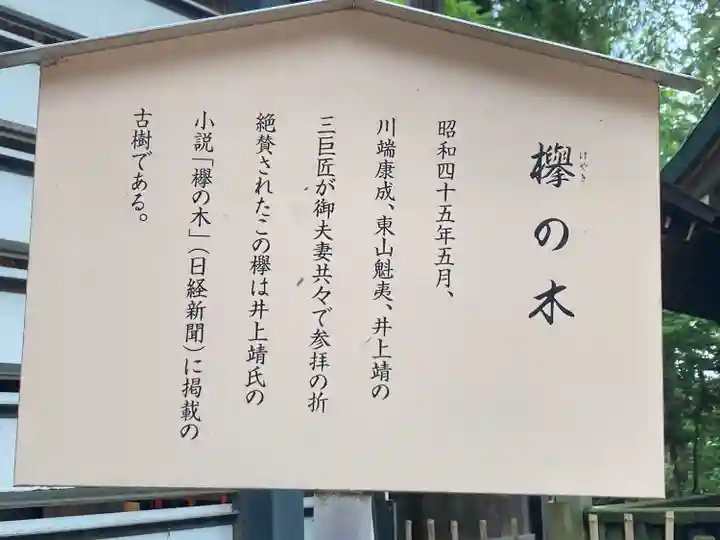 欅の木
けやき
昭和四十五年五月、
川端康成、東山魁夷、井上靖の
三巨匠が御夫妻共々で参拝の折
絶賛されたこの欅は井上靖氏の
小説「欅の木」（日経新聞）に掲載の
古樹である。